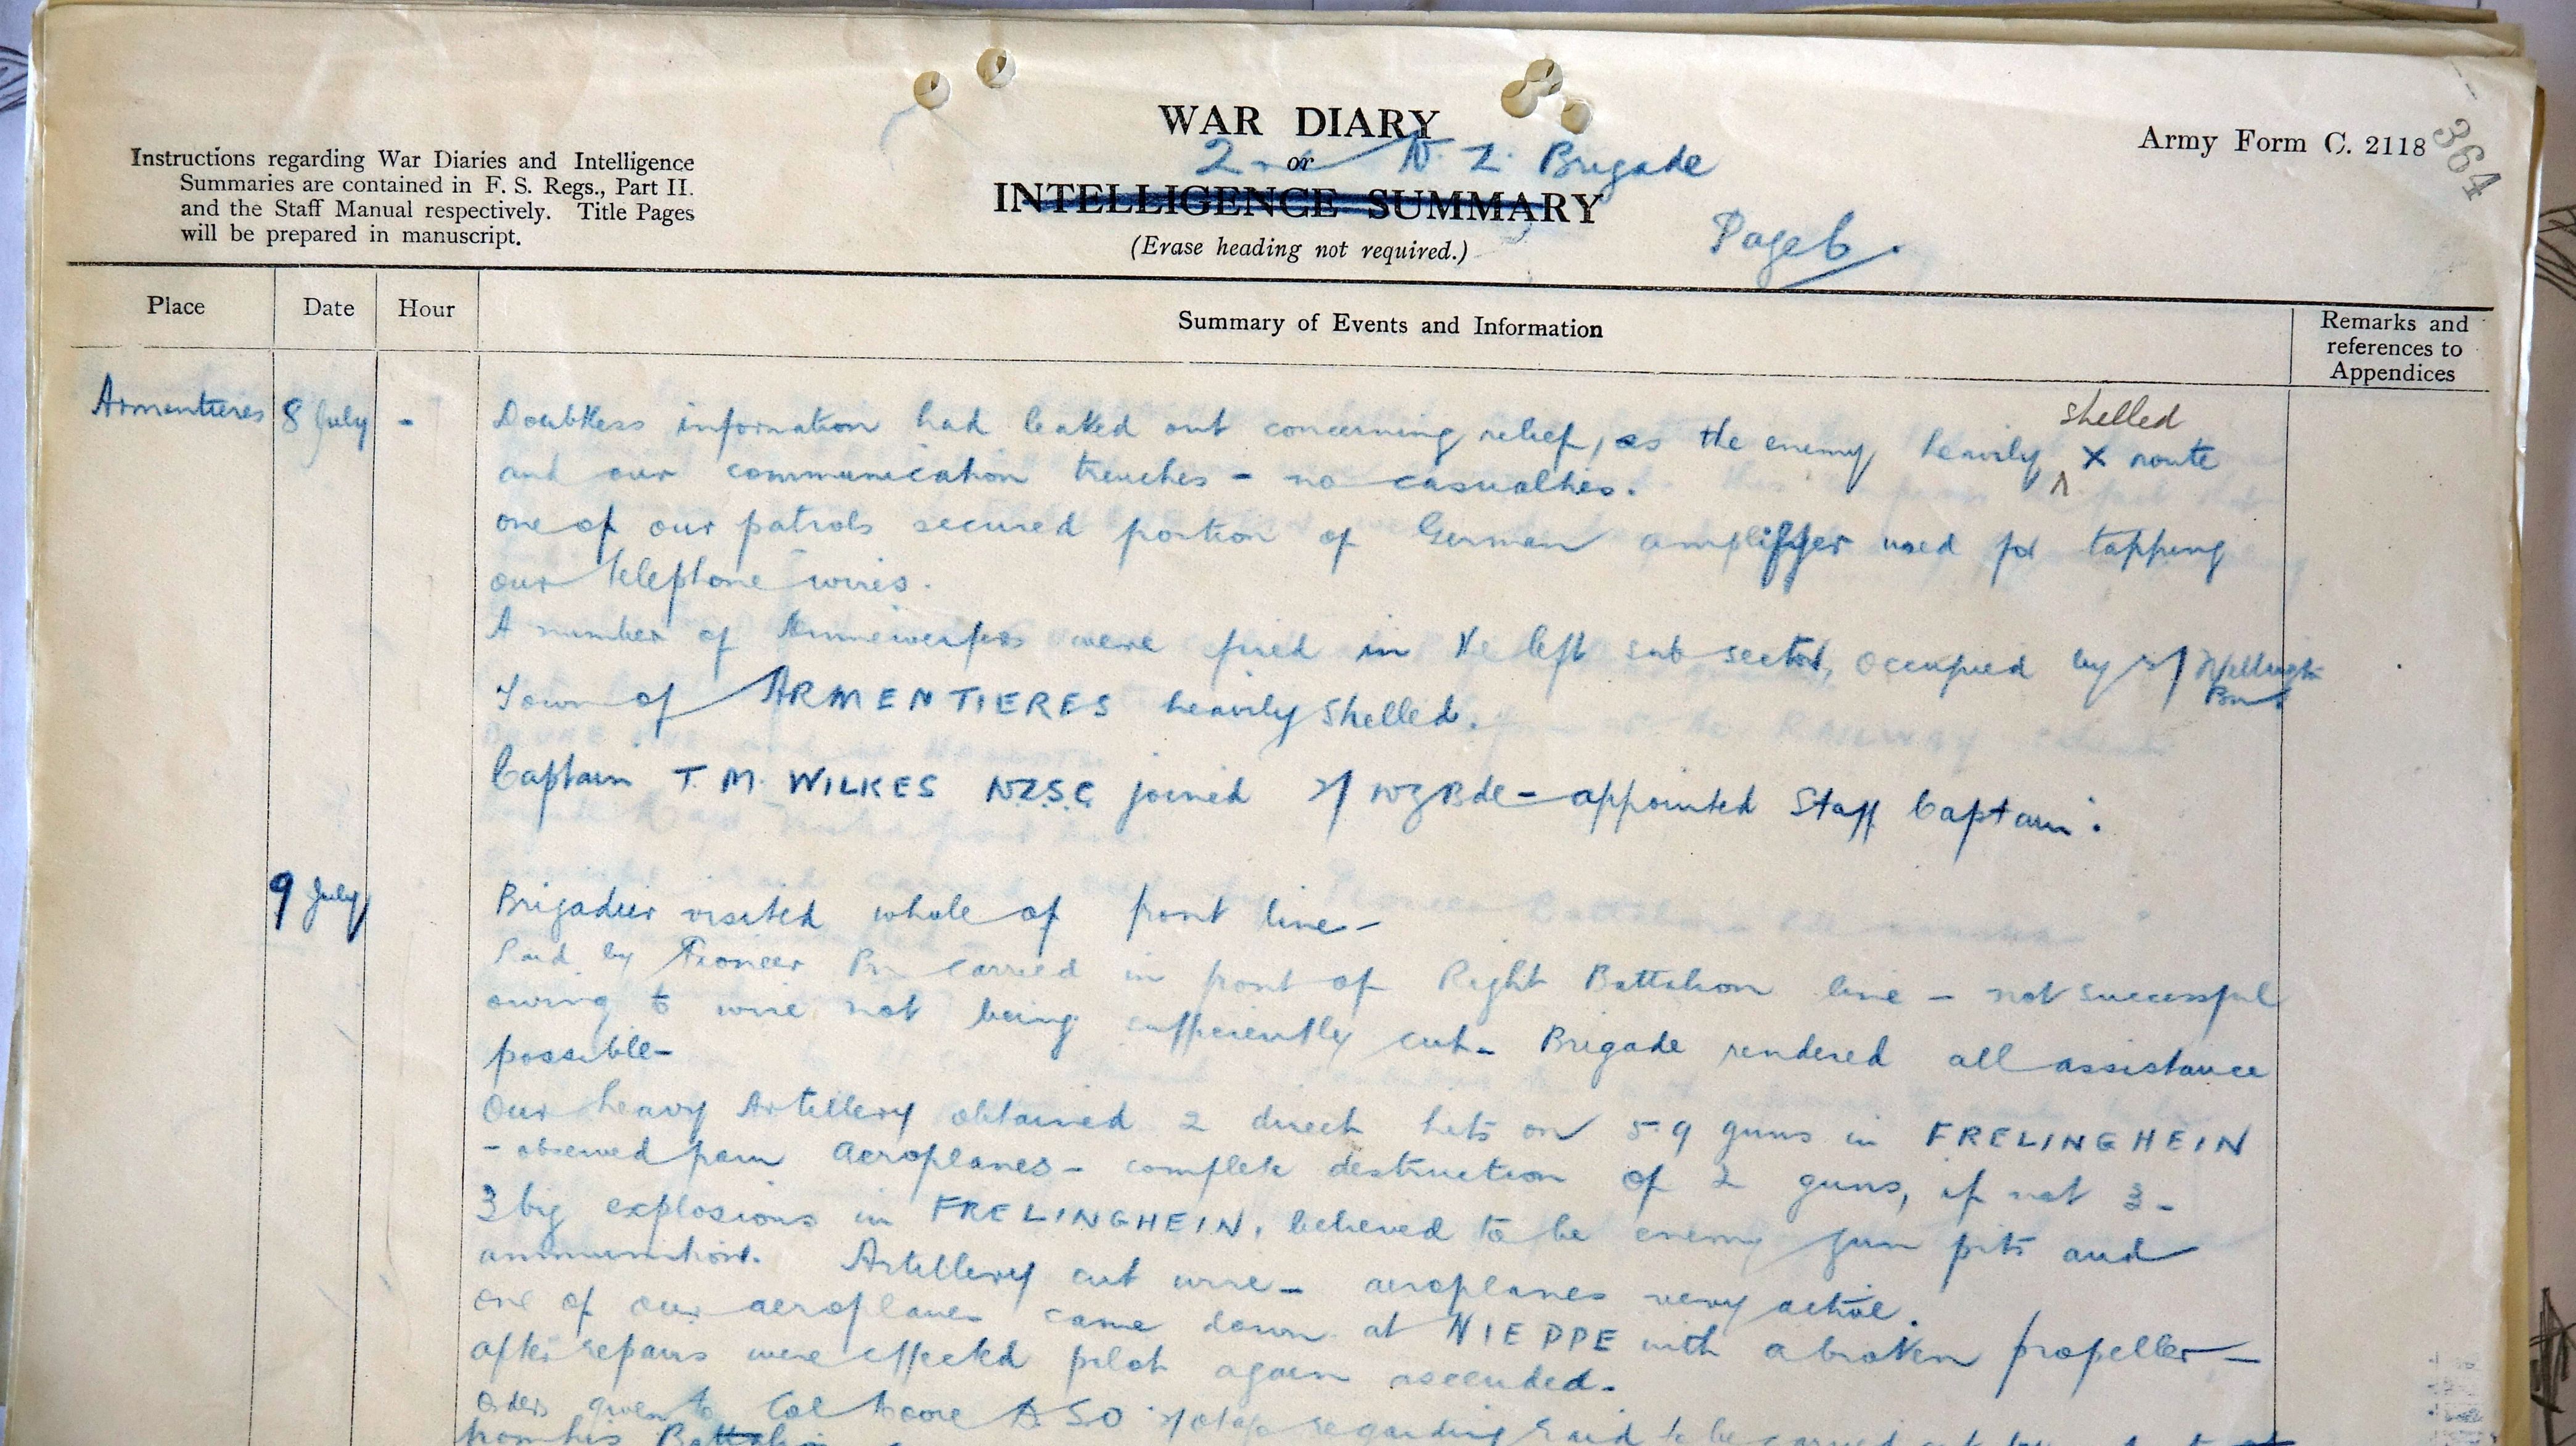 WAR DIARY
2nd N. Z. Brigade
or
INTELLIGENCE SUMMARY
(Erase heading not required.)
Page 6.
Army Form C. 2118
364
Instructions regarding War Diaries and Intelligence
Summaries are contained in F. S. Regs., Part II.
and the Staff Manual respectively. Title Pages
will be prepared in manuscript.
Place
Date
Hour
Summary of Events and Information
Remarks and
references to
Appendices
Armentieres 8 July -
shelled
Doubtless information had leaked out concerning relief, as the enemy heavily x route
and our communication trenches - no casualties.
one of our patrols secured portion of German amplifyer used for tapping
our telephone wires.
A number of Minnewerfers were fired in the left sub sector, occupied by 2/ Wellington
Bn
Town of ARMENTIERES heavily shelled.
Captain T. M. WILKES NZ.S.C. joined 2/ NZ Bde - appointed Staff Captain.
9 July
Brigadier visited whole of front line -
Raid by Pioneer Bn carried in front of Right Battalion line - not successful
owing to wire not being sufficiently cut - Brigade rendered all assistance
possible -
Our heavy Artillery obtained 2 direct hits on 5.9 guns in FRELINGHEIN
- observed from aeroplanes - complete destruction of 2 guns, if not 3 -
3 big explosions in FRELINGHEIN, believed to be enemy gun pits and
ammunition. Artillery cut wire - aeroplanes very active.
one of our aeroplanes came down at NIEPPE with a broken propeller -
after repairs were effected pilot again ascended -
Orders given to Col Moore DSO 2/ Otago regarding raid to be carried out
from his Battalion